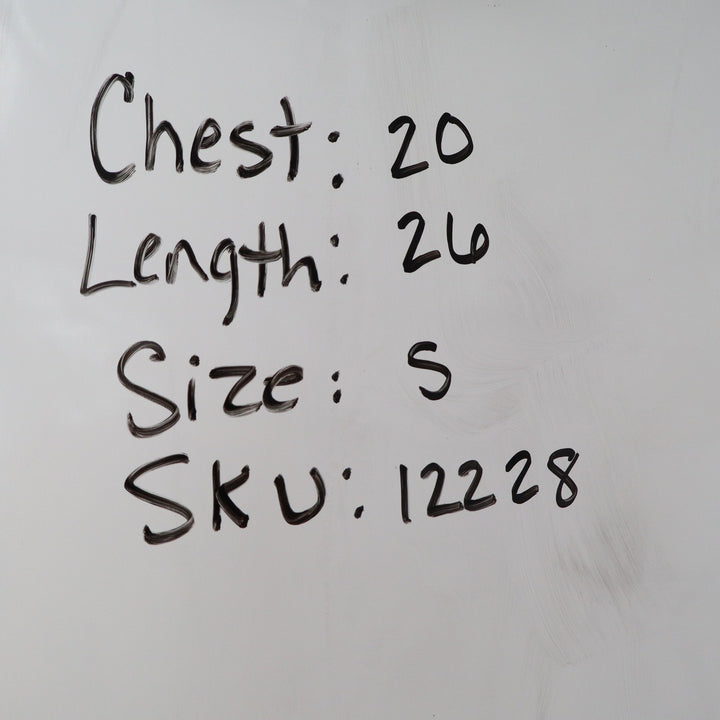 Chest: 20
Length: 26
Size: S
SKU: 12228